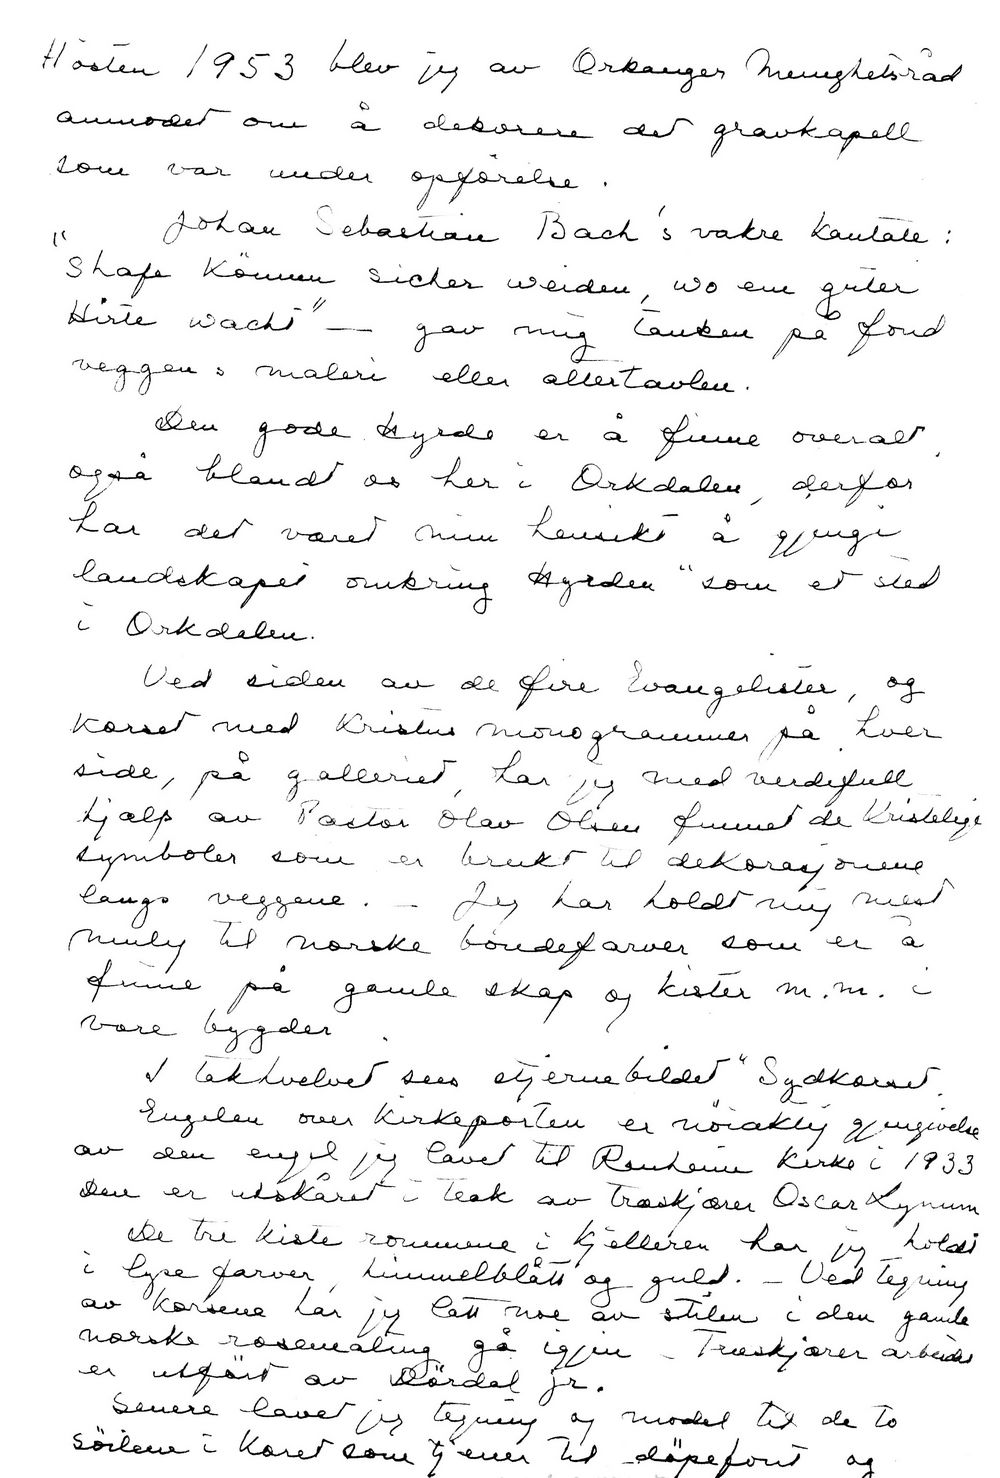 Hösten 1953 blev jeg av Orkanger Menighetsråd
anmodet om å dekorere det gravkapell
som var under opførelse.
Johan Sebastian Bach's vakre kantate:
"Shafe können sicher weiden, wo ein guter
Hirte wacht" — gav mig tanken på fond
veggens maleri eller altertavlen.
Den gode Hyrde er å finne overalt,
også blandt os her i Orkdalen, derfor
har det været min hensikt å gjengi
landskapet omkring Hyrden "som et sted
i Orkdalen.
Ved siden av de fire Evangelister, og
korset med Kristus monogrammer på hver
side, på galleriet, har jeg med verdifull
hjælp av Pastor Olav Olsen funnet de Kristelige
symboler som er brukt til dekorasjonene
langs veggene. — Jeg har holdt mig mest
mulig til norske bondefarver som er å
finne på gamle skap og kister m.m. i
vore bygder.
I takhvelvet sees stjernebildet "Sydkorset.
Engelen over Kirkeporten er nöiaktig gjengivelse
av den engel jeg lavet til Ranheim Kirke i 1933
Den er utskåret i teak av træskjærer Oscar Lynum
De tre kiste rommene i kjelleren har jeg holdt
i lyse farver, himmelblått og guld. — Ved tegning
av korsene har jeg latt noe av stilen i den gamle
norske rosemaling gå igjen — Træskjærer arbeidet
er utfört av Dördal jr.
Senere lavet jeg tegning og model til de to
söilene i Koret som tjener til döpefont og